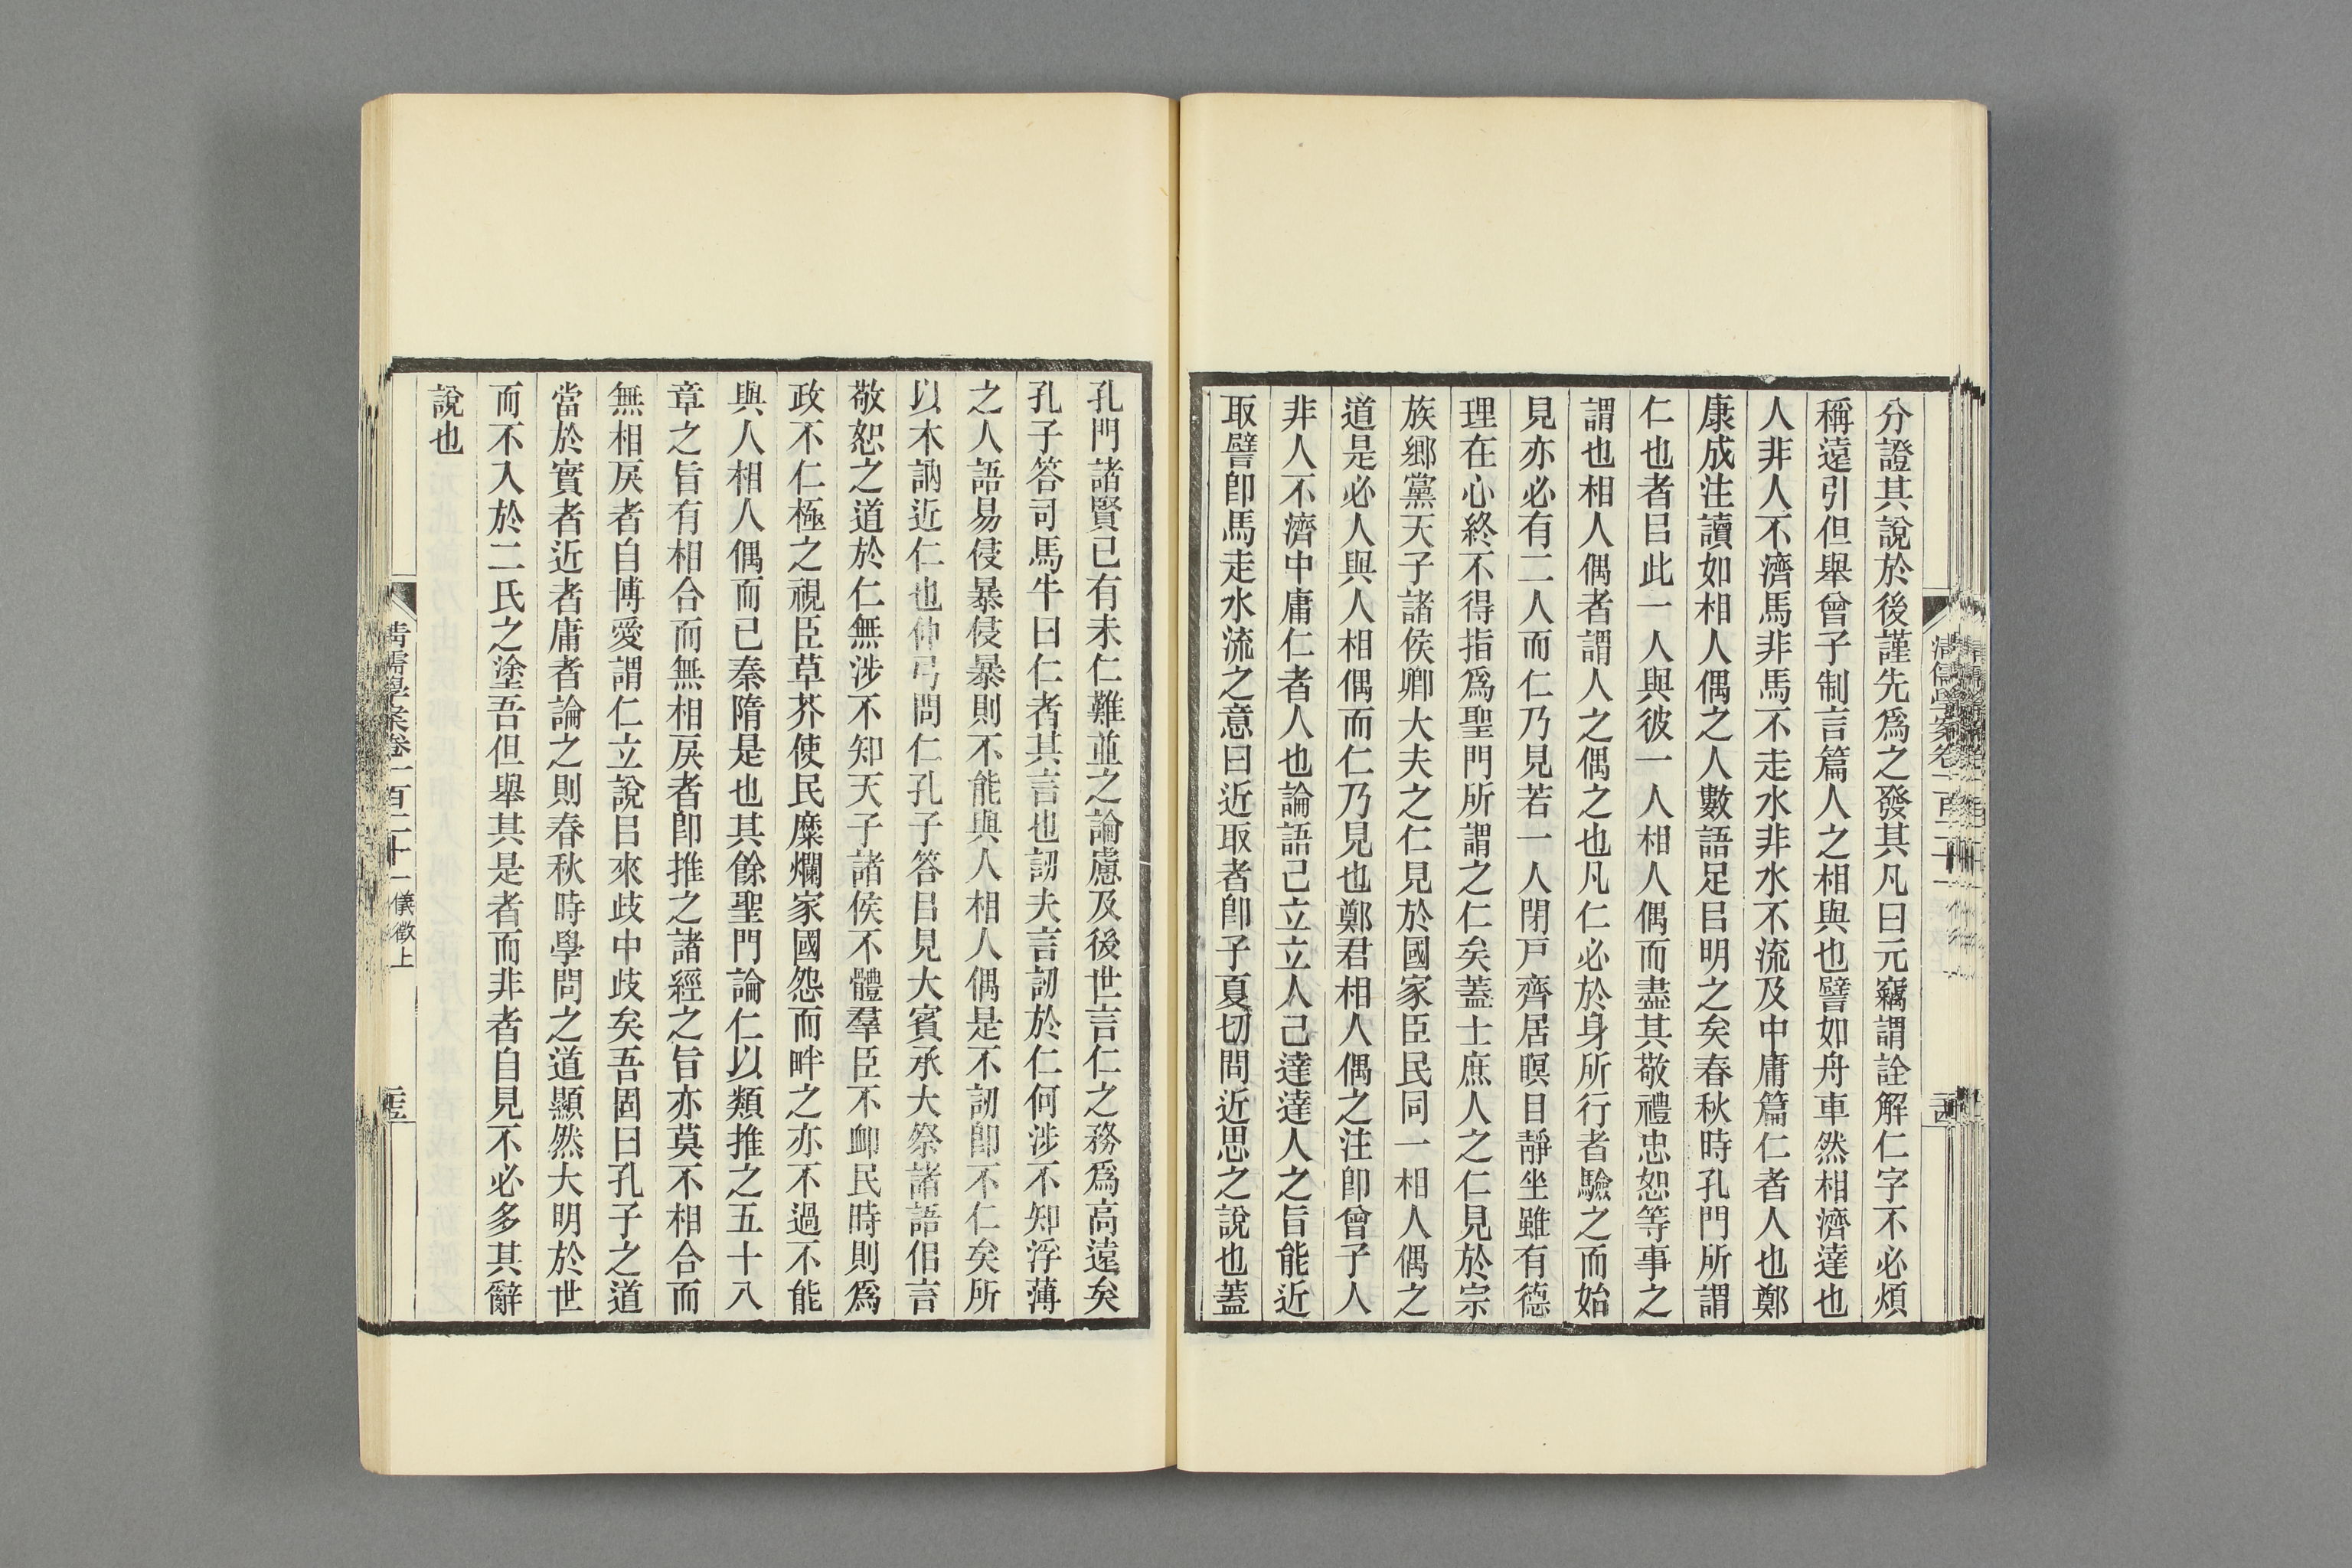 分證其說於後謹先爲之發其凡曰元竊謂詮解仁字不必煩
稱遠引但舉曾子制言篇人之相與也譬如舟車然相濟達也
人非人不濟馬非馬不走水非水不流及中庸篇仁者人也鄭
康成注讀如相人偶之人數語足㠯明之矣春秋時孔門所謂
仁也者㠯此一人與彼一人相人偶而盡其敬禮忠恕等事之
謂也相人偶者謂人之偶之也凡仁必於身所行者驗之而始
見亦必有二人而仁乃見若一人閉戶齊居瞑目靜坐雖有德
理在心終不得指爲聖門所謂之仁矣蓋士庶人之仁見於宗
族鄉黨天子諸侯卿大夫之仁見於國家臣民同一相人偶之
道是必人與人相偶而仁乃見也鄭君相人偶之注卽曾子人
非人不濟中庸仁者人也論語己立立人己達達人之旨能近
取譬卽馬走水流之意曰近取者卽子夏切問近思之說也蓋
孔門諸賢已有未仁難並之論慮及後世言仁之務爲高遠矣
孔子答司馬牛曰仁者其言也訒夫言訒於仁何涉不知浮薄
之人語易侵暴侵暴則不能與人相人偶是不訒卽不仁矣所
以木訥近仁也仲弓問仁孔子答㠯見大賓承大祭諸語佀言
敬恕之道於仁無涉不知天子諸侯不體羣臣不卹民時則爲
政不仁極之視臣草芥使民糜爛家國怨而畔之亦不過不能
與人相人偶而已秦隋是也其餘聖門論仁以類推之五十八
章之旨有相合而無相戾者卽推之諸經之旨亦莫不相合而
無相戾者自博愛謂仁立說㠯來歧中歧矣吾固曰孔子之道
當於實者近者庸者論之則春秋時學問之道顯然大明於世
而不入於二氏之塗吾但舉其是者而非者自見不必多其辭
說也
清儒學案卷一百二十一 儀徵上